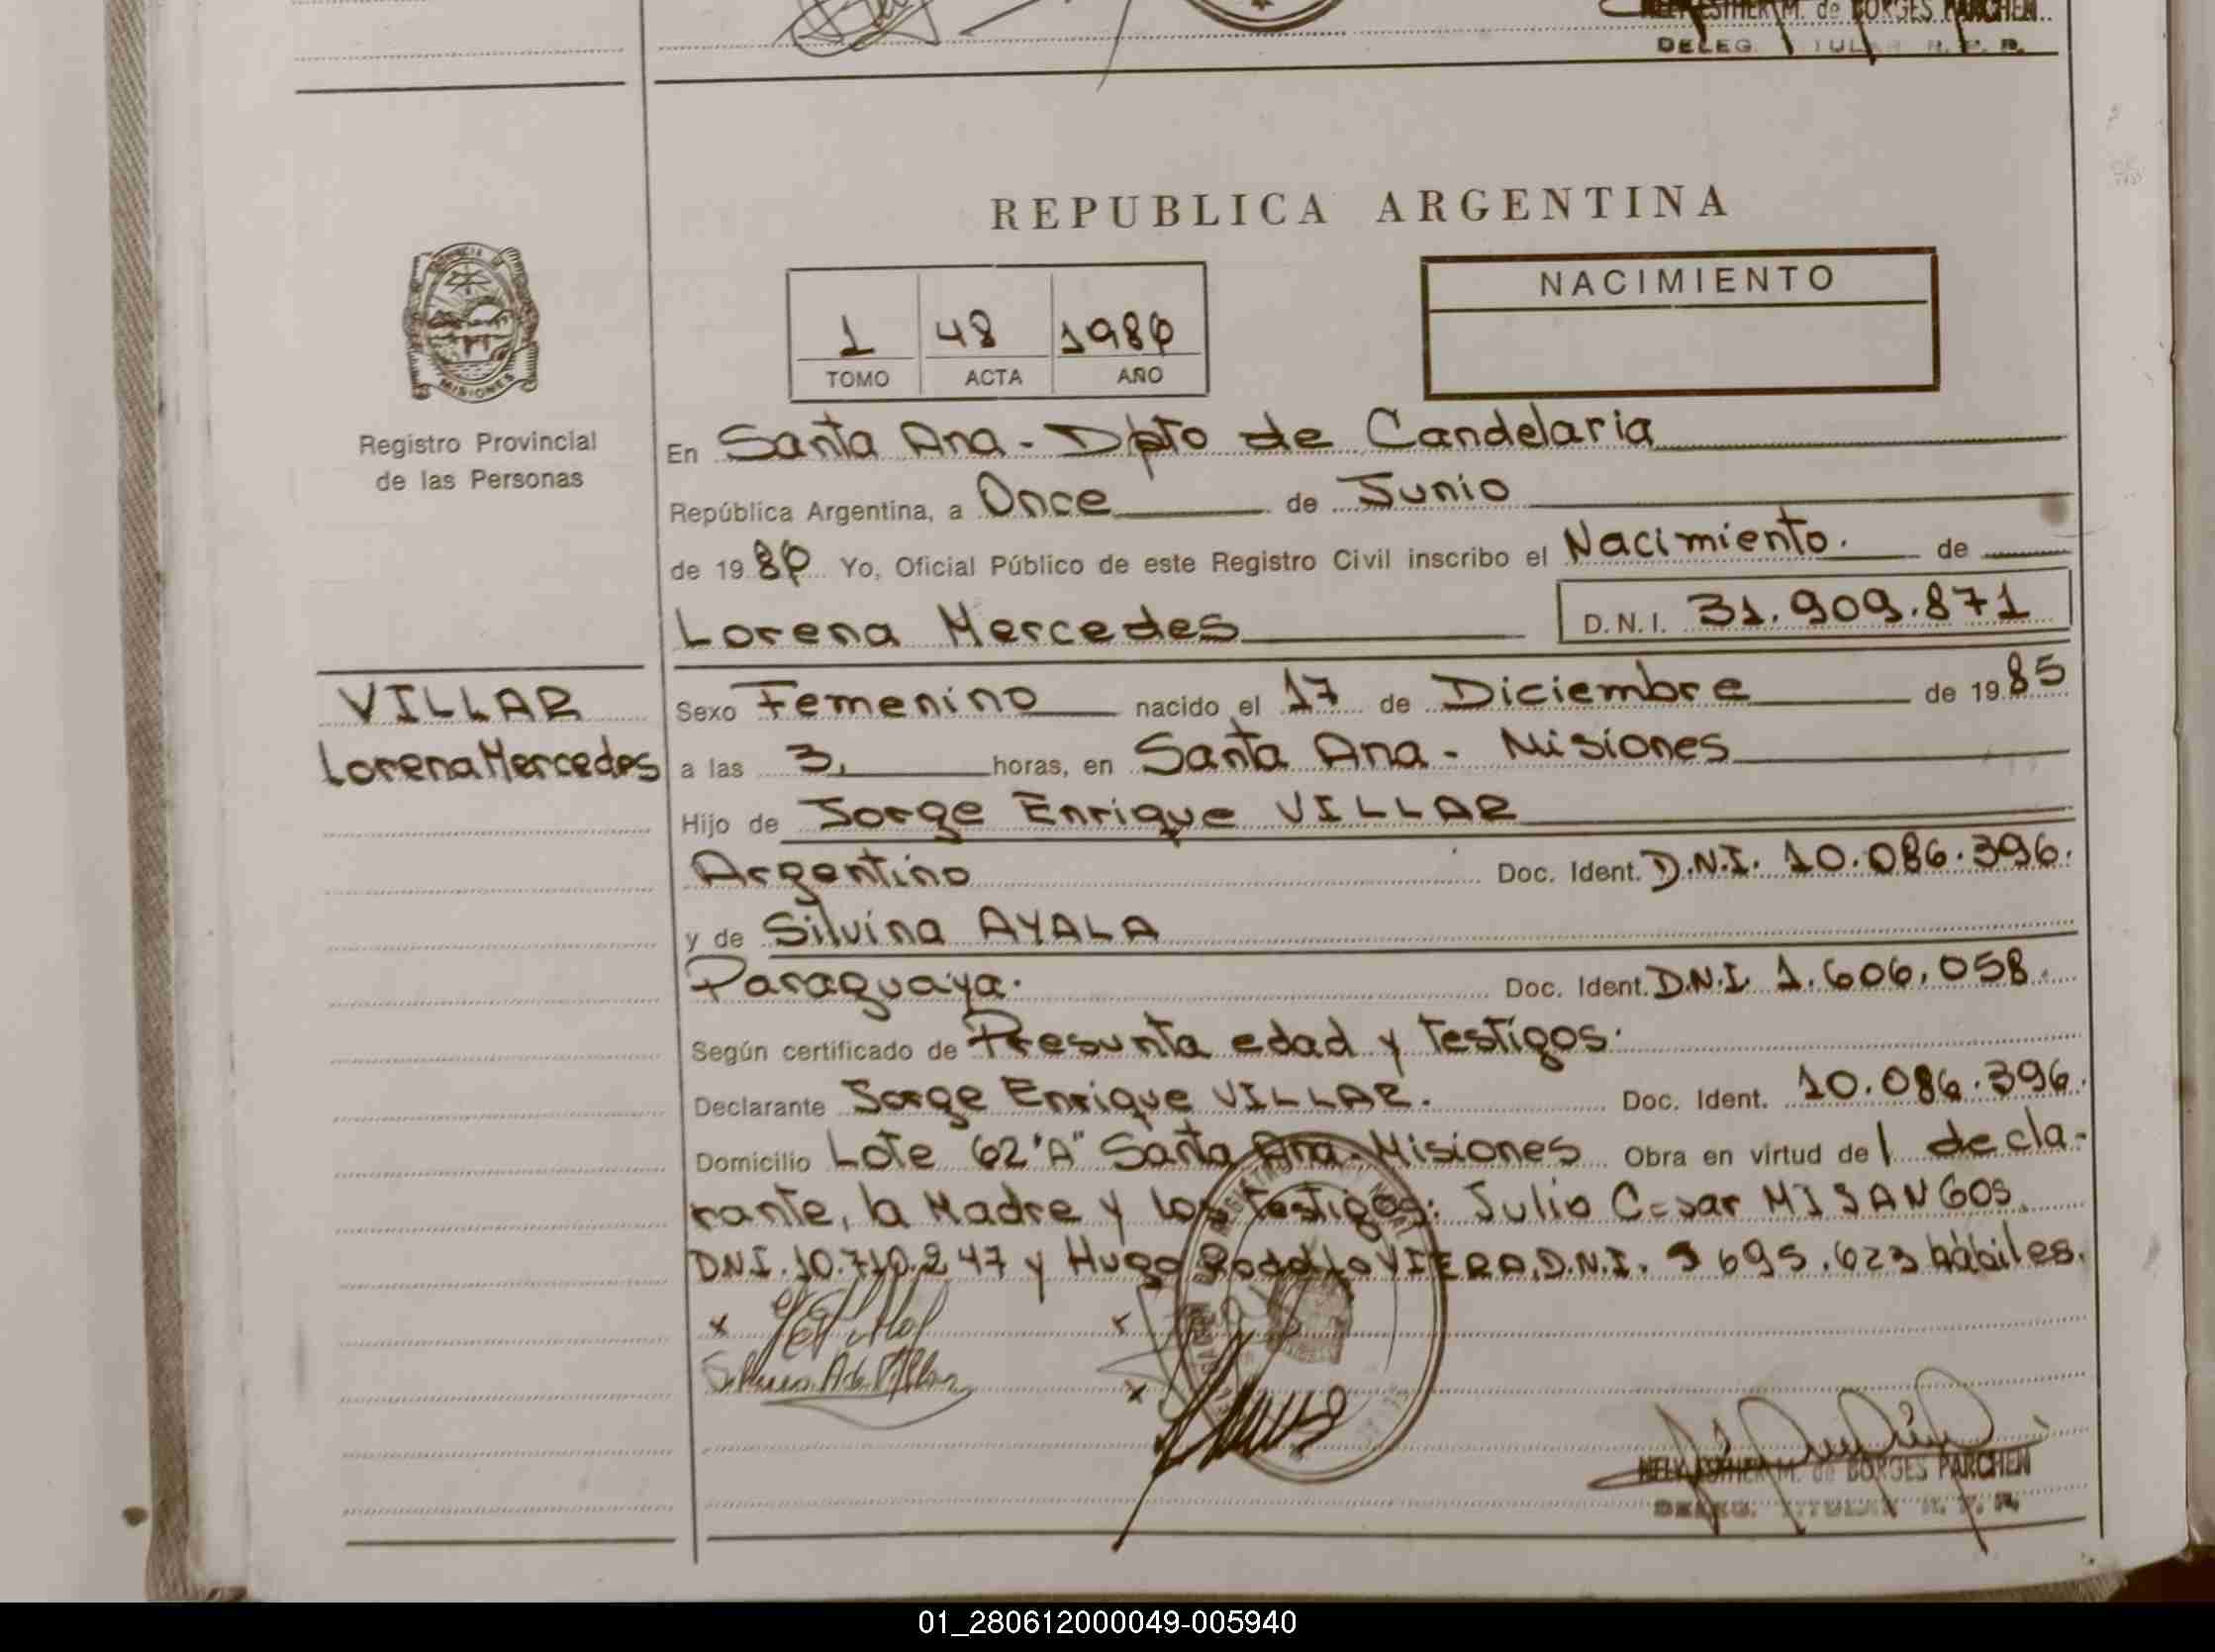 NELY ESTHER M. de BORGES PARCHEN
DELEG. TITULAR R. P. P.
REPUBLICA ARGENTINA
PROVINCIA DE
MISIONES
Registro Provincial
de las Personas
1 48 1986
TOMO ACTA AÑO
NACIMIENTO
En Santa Ana - Dpto de Candelaria
República Argentina, a Once de Junio
de 1986 Yo, Oficial Público de este Registro Civil inscribo el Nacimiento. de
Lorena Mercedes D.N.I. 31.909.871
VILLAR
Lorena Mercedes
Sexo Femenino nacido el 17 de Diciembre de 1985
a las 3, horas, en Santa Ana - Misiones
Hijo de Jorge Enrique VILLAR
Argentino Doc. Ident. D.N.I. 10.086.396.
y de Silvina AYALA
Paraguaya. Doc. Ident. D.N.I. 1.606.058.
Según certificado de Presunta edad y Testigos.
Declarante Jorge Enrique VILLAR. Doc. Ident. 10.086.396.
Domicilio Lote 62 "A" Santa Ana - Misiones Obra en virtud de l decla-
rante, la Madre y los testigos: Julio Cesar
DNI. 10.710.247 y Hugo Rodolfo VIERA, D.N.I. 695.623 hábiles.
NELY ESTHER M. de BORGES PARCHEN
DELEG. TITULAR R. P. P.
01_280612000049-005940